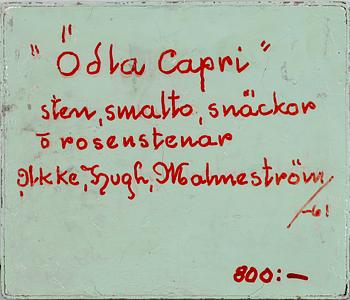 " Ödla Capri "
sten, smalto, snäckor
ō rosenstenar
Akke, Hugh, Malmeström
/-61
800:-